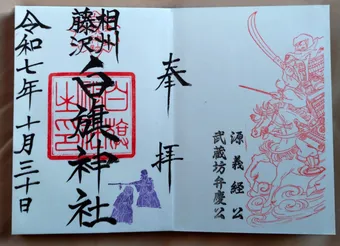 源義経公
武蔵坊弁慶公
奉拝
相州
藤沢
白旗神社
令和七年十月三十日